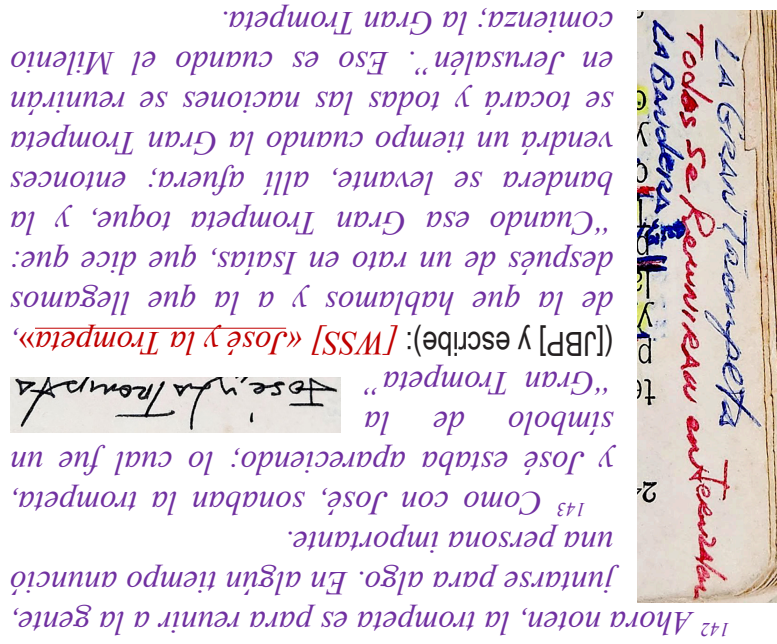 142 Ahora noten, la trompeta es para reunir a la gente,
juntarse para algo. En algún tiempo anunció
una persona importante.
143 Como con José, sonaban la trompeta,
y José estaba apareciendo; lo cual fue un
símbolo de la
“Gran Trompeta”
José y la Trompeta
([JBP] y escribe): [WSS] «José y la Trompeta»,
de la que hablamos y a la que llegamos
después de un rato en Isaías, que dice que:
“Cuando esa Gran Trompeta toque, y la
bandera se levante, allí afuera; entonces
vendrá un tiempo cuando la Gran Trompeta
se tocará y todas las naciones se reunirán
en Jerusalén”. Eso es cuando el Milenio
comienza; la Gran Trompeta.
LA GRAN Trompeta
Todas Se Reuniran en Jerusalen
LA Bandera